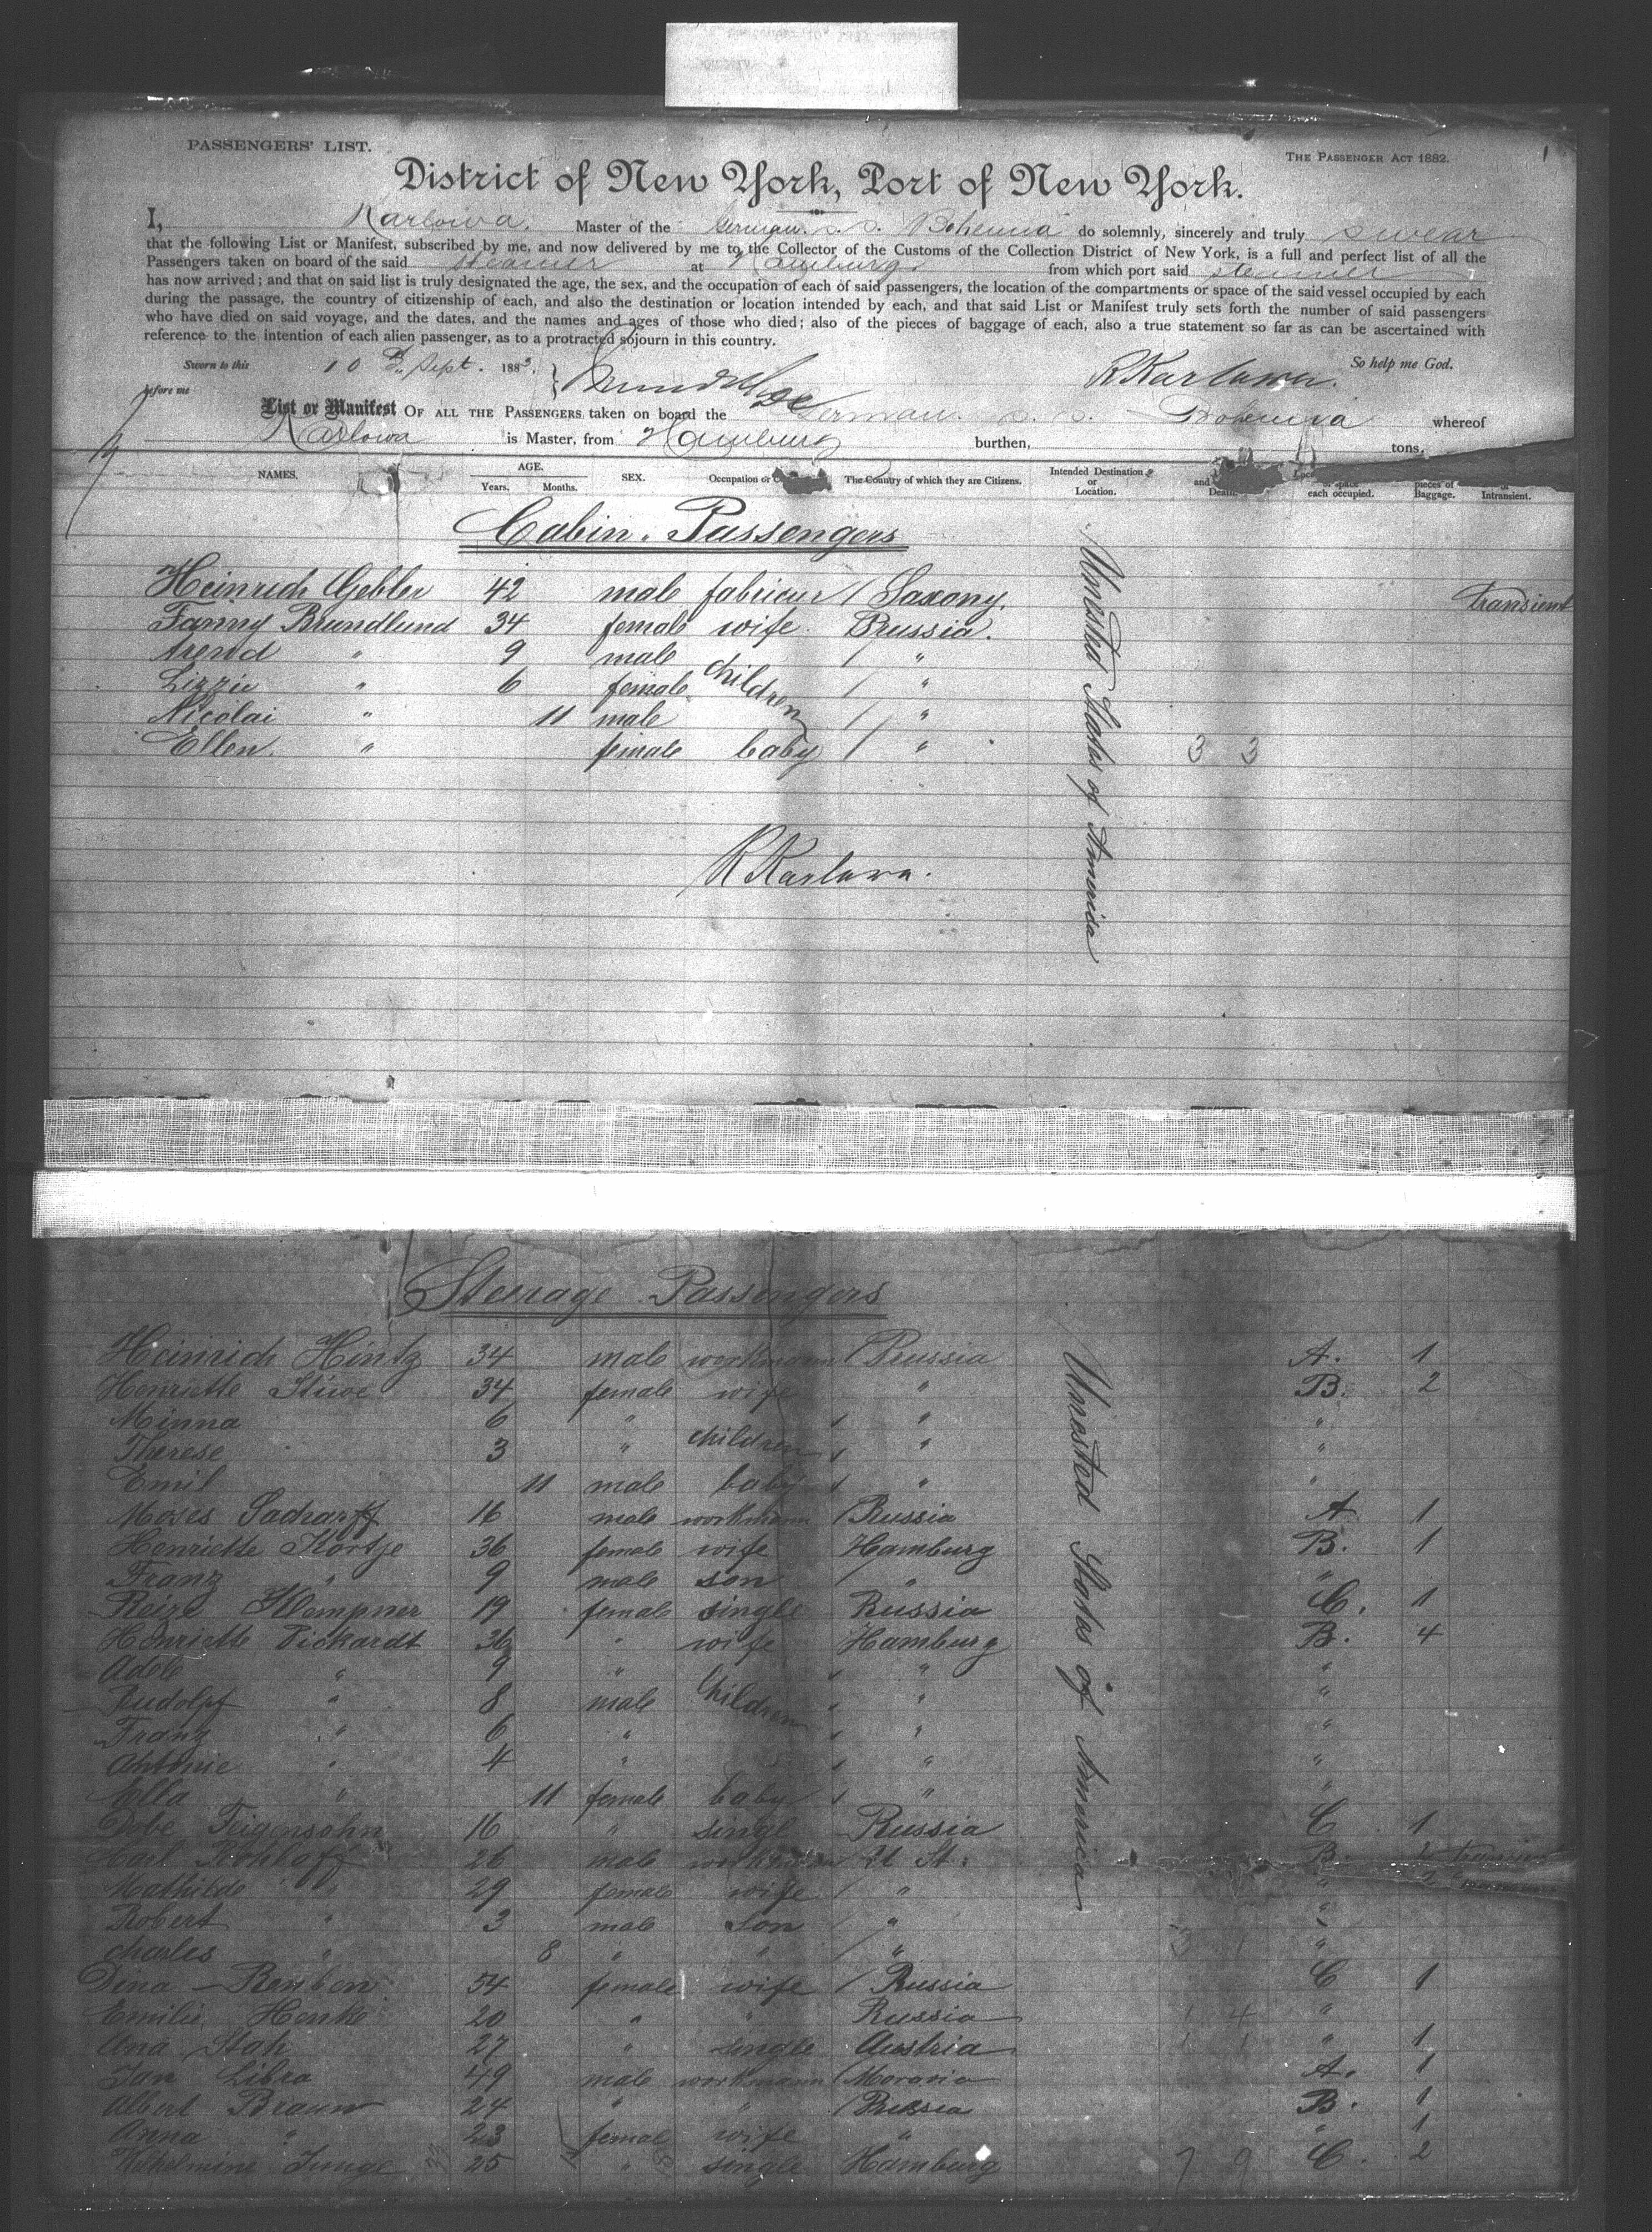 PASSENGERS' LIST.
THE PASSENGER ACT 1882.
1
District of New York, Port of New York.
I, Karlowa. Master of the German. s. s. Bohemia do solemnly, sincerely and truly swear
that the following List or Manifest, subscribed by me, and now delivered by me to the Collector of the Customs of the Collection District of New York, is a full and perfect list of all the
Passengers taken on board of the said steamer at Hamburg. from which port said steamer
has now arrived; and that on said list is truly designated the age, the sex, and the occupation of each of said passengers, the location of the compartments or space of the said vessel occupied by each
during the passage, the country of citizenship of each, and also the destination or location intended by each, and that said List or Manifest truly sets forth the number of said passengers
who have died on said voyage, and the dates, and the names and ages of those who died; also of the pieces of baggage of each, also a true statement so far as can be ascertained with
reference to the intention of each alien passenger, as to a protracted sojourn in this country.
So help me God.
Sworn to this 10 Sept. 1883.
RKarlowa.
before me
List or Manifest OF ALL THE PASSENGERS taken on board the German. s. s. Bohemia whereof
Karlowa is Master, from Hamburg burthen, tons.
NAMES. AGE. Years. Months. SEX. Occupation or The Country of which they are Citizens. Intended Destination or Location. and Death. or space each occupied. pieces of Baggage. or Intransient.
Cabin. Passengers
Heinrich Gebler 42 male fabrieur / Saxony. Transient
Fanny Brundlund 34 female wife. Prussia.
Arend " 9 male / "
Lizzie " 6 female children / "
Nicolai " 11 male / "
Ellen. " female baby / " 3 3
Unested States of America
RKarlowa.
Steerage Passengers
Heinrich Hintz 34 male workmann / Prussia A. 1
Henriette Stüwe 34 female wife " B. 2
Minna 6 " " "
Therese 3 " children " "
Emil 11 male baby " "
Moses Sacharff 16 male workmann / Russia A. 1
Henriette Kortje 36 female wife Hamburg B. 1
Franz " 9 male son / " "
Reize Klempner 19 female single Russia C. 1
Henriette Pickardt 36 " wife Hamburg B. 4
Adele " 9 " " "
Rudolf " 8 male Children " "
Franz " 6 " " "
Antonie " 4 " " "
Ella " 11 female baby " "
Dobe Feigensohn 16 " singl Russia C 1
Carl Rohloff 26 male workmann U St. B. 2
Mathilde " 29 female wife / " " 2
Robert " 3 male son / " "
Charles " 8 " " / " 3 1 "
Dina Renben. 54 female wife / Russia C 1
Emilie Henke 20 " " Russia 1 4 "
Ana Stah 27 " single Austria 1 1 " 1
Jan Libra 49 male workmann / Moravia A. 1
Albert Braun 24 " " / Prussia B. 1
Anna " 23 female wife " " 1
Wilhelmine Junge 25 " single Hamburg 7 9 C. 2
Unested States of America